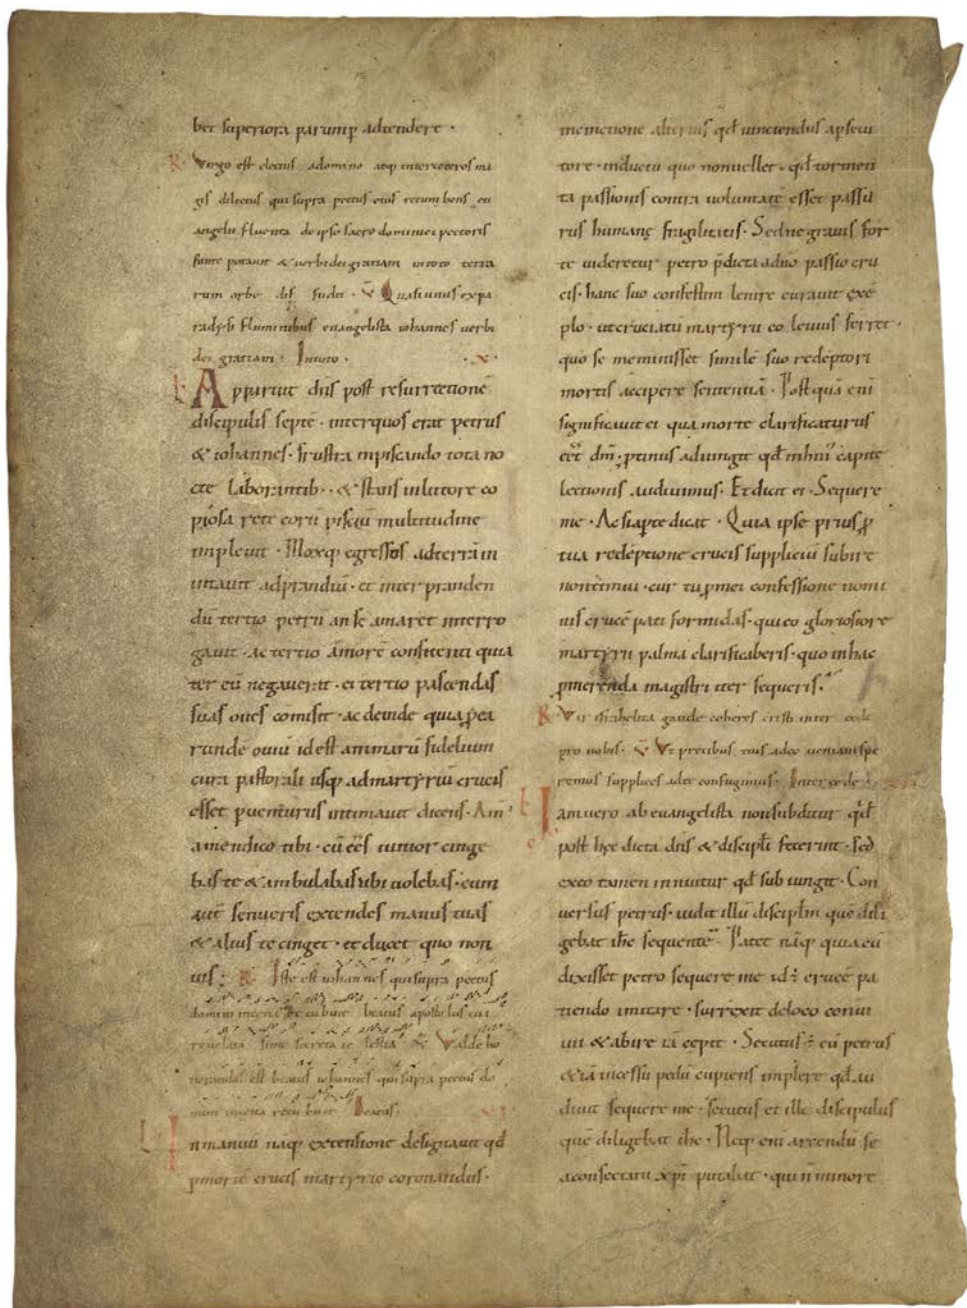 bet superiora parumꝑ adtendere ·
R· Virgo est electus adomino atq; interceteros ma
gis dilectus qui supra pectus eius recumbens eu
angelii fluenta deipso sacro dominici pectoris
fonte potauit & uerbi dei gratiam intoto terra
rum orbe dif fudit · V Quasi unus expa
radysi fluminibus euangelista iohannes uerbi
dei gratiam · Intoto · · X ·
L Apparuit dns̄ post resurrectionē
discipulis septē · interquos erat petrus
& iohannes · frustra inpiscando tota no
cte laborantib; · & stans inlittore co
piosa rete eorū pisciū multitudine
impleuit · Moxq; egressos adterrā in
uitauit adprandiū · et inter pranden
dū tertio petrū an se amaret interro
gauit · ac tertio amorē confitenti quia
ter eū negauerat · ei tertio pascendas
suas oues cōmisit · ac deinde quia ꝓea
rundē ouiū id est animarū fidelium
cura pastorali usq; admartyriū crucis
esset ꝑuenturus intimauit dicens · Am̄
amen dico tibi · cū eēs iunior cinge
bas te & ambulabas ubi uolebas · cum
aut̄ senueris extendes manus tuas
& alius te cinget · et ducet quo non
uis ; R Iste est iohannes qui supra pectus
domini in cena recubuit beatus apostolus cui
reuelata sunt secreta ce lestia V Valde ho
norandus est beatus iohannes qui supra pectus do
mini incena recubuit Beatus ·
L In manuū naq; extensione designauit qđ
ꝑmortē crucis martyrio coronandus ·
incinctione alterius qđ uinciendus apsecu
tore · inductu quo nonuellet · qđ tormen
ta passionis contra uoluntatē esset passu
rus humanę fragilitatis · Sed ne grauis for
te uideretur petro p̄dicta adn̄o passio cru
cis · hanc suo confestim lenire curauit exē
plo · ut cruciatū martyrii eo leuius ferret ·
quo se meminisset similē suo redēptori
mortis accipere sententiā · Post quā eni
significauit ei qua morte clarificaturus
eēt dm̄ · ꝓtinus adiungit qđ in hui' capite
lectionis audiuimus · Et dicit ei · Sequere
me · Ac si apte dicat · Quia ipse prius ꝓ
tua redēptione crucis suppliciū subire
nontimui · cur tu ꝓ mei confessione nomi
nis crucē pati formidas · qui eo gloriosiore
martyrii palma clarificaberis · quo inhac
ꝓmerenda magistri iter sequeris ·
R Vir israhelita gaude coheres cristi inter cede
pro nobis · V Vt precibus tuis adeo ueniam spe
remus supplices adte confugimus · Intercede ·
L Iam uero ab euangelista non subditur qđ
post hęc dicta dns̄ & discipli fecerint · sed
exeo tamen innuitur qđ sub iungit · Con
uersus petrus · uidit illū disciplm̄ quē dili
gebat ihc̄ sequentē · Patet naq; quia cū
dixisset petro sequere me id ÷ crucē pa
tiendo imitare · surrexit deloco conui
uii & abire iā cepit · Secutus ÷ eū petrus
& iā incessu pedū cupiens implere qđ au
diuit sequere me · secutus et ille discipulus
quē diligebat ihc̄ · Neq; eni arcendū se
aconsectatu xp̄i putabat · qui n̄ minore